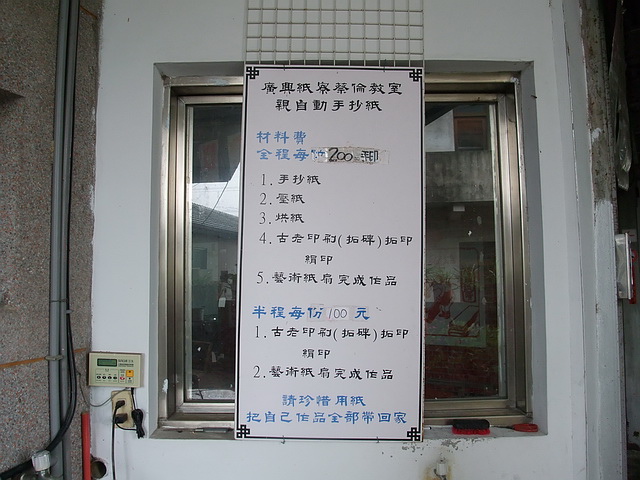 廣興紙寮蔡倫教室
親自動手抄紙
材料費
全程每份200元
1.手抄紙
2.壓紙
3.烘紙
4.古老印刷(拓碑)拓印
絹印
5.藝術紙扇完成作品
半程每份100元
1.古老印刷(拓碑)拓印
絹印
2.藝術紙扇完成作品
請珍惜用紙
把自己作品全部帶回家